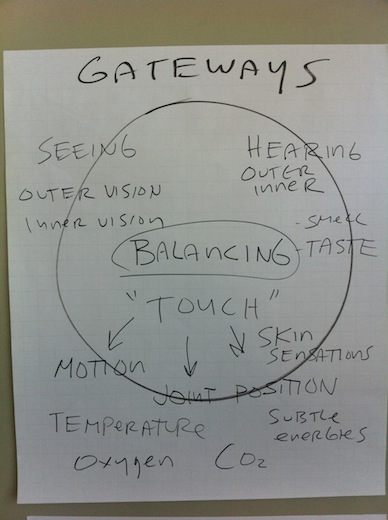 GATEWAYS
SEEING
OUTER VISION
INNER VISION
HEARING
OUTER
INNER
- SMELL
- TASTE
BALANCING
"TOUCH"
MOTION
JOINT POSITION
SKIN
SENSATIONS
TEMPERATURE
SUBTLE
energies
Oxygen CO2